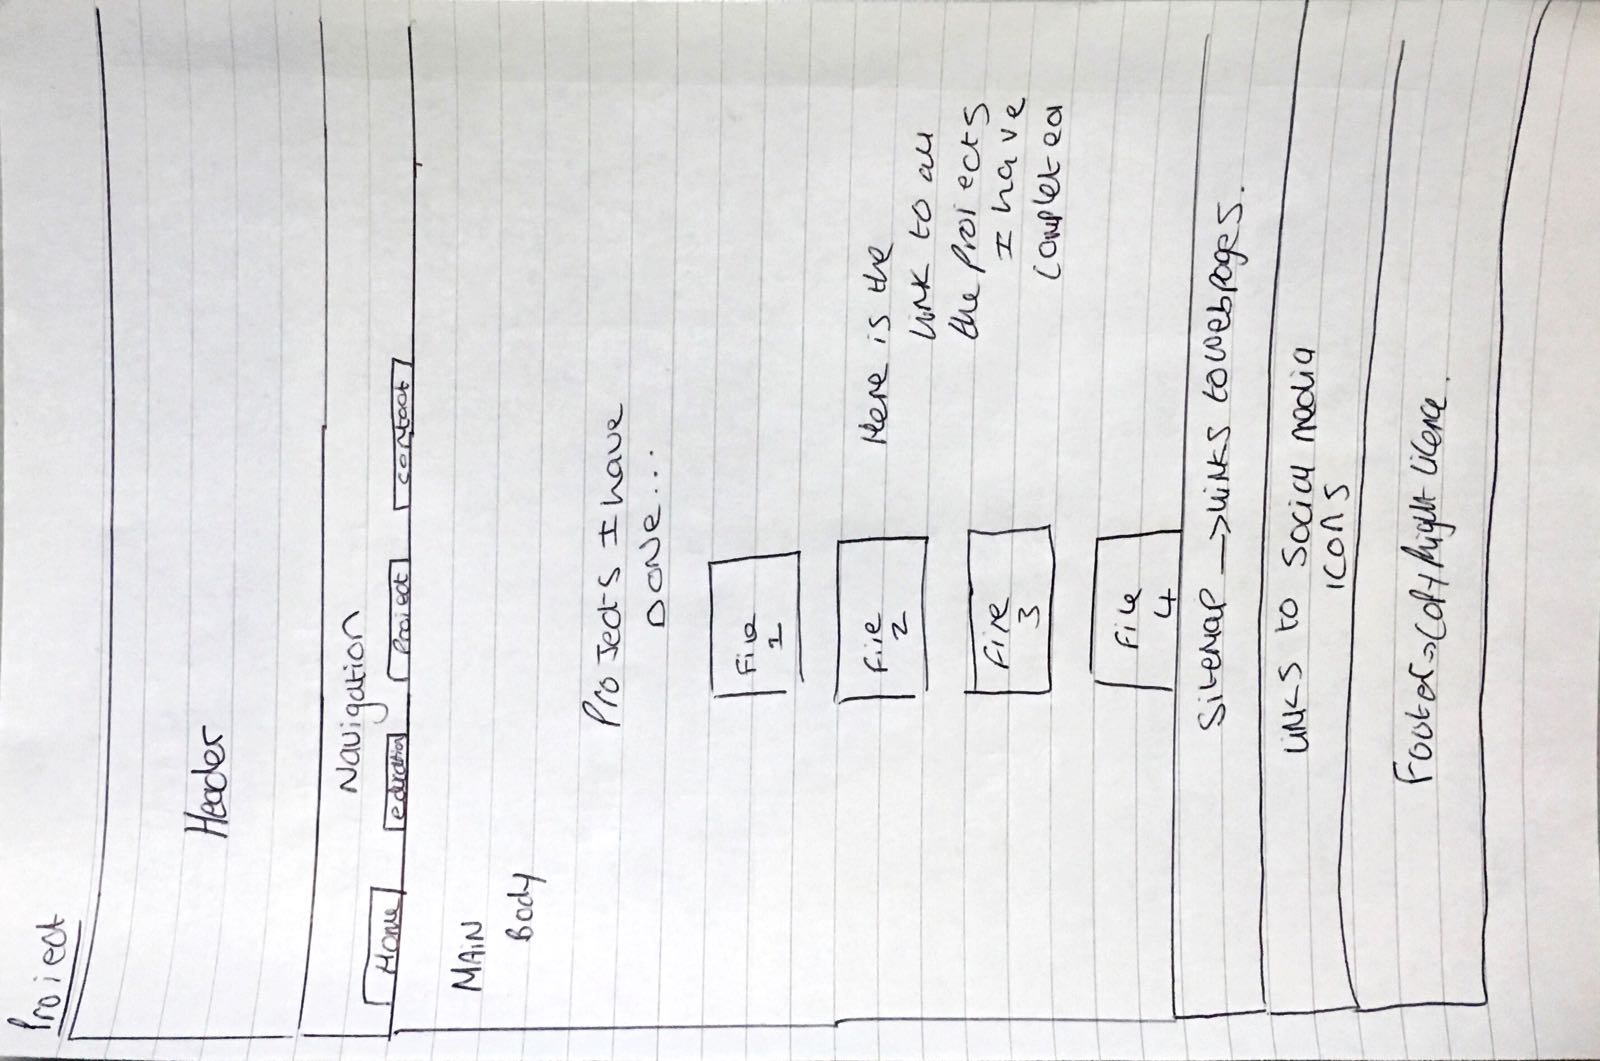 Project
Header
Navigation
Home
education
Project
contact
MAIN
Body
Projects I have
DONE...
File
1
File
2
File
3
File
4
Here is the
link to all
the Projects
I have
completed
Sitemap → links to webpages.
links to Social media
icons
Footer → Copyright licence.